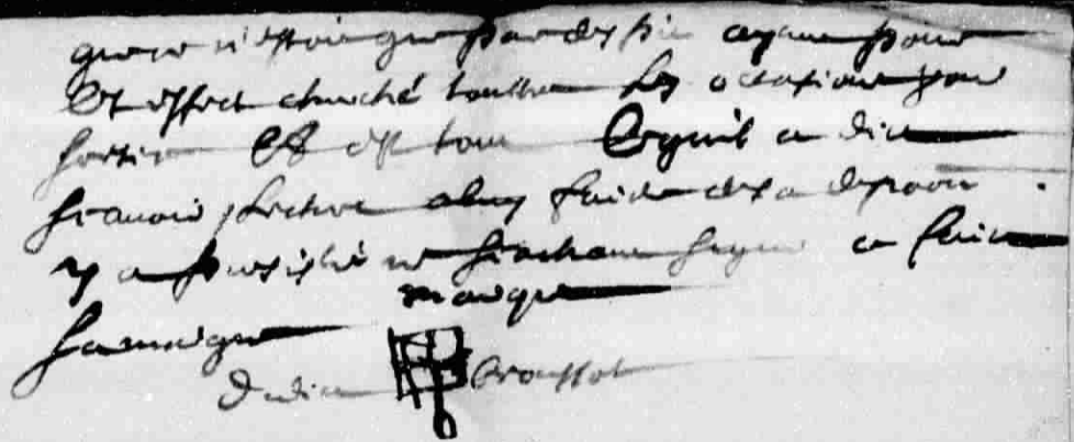 que ce n'estoit que par despit ayant pour
cet effect cherché touttes les occasions pour
sortir Et est tout ce quil a dict
scavoir lecture a luy faicte de sa depposition
y a persisté ne sachant signer a faict
marque
sa marque
dudict Broussot